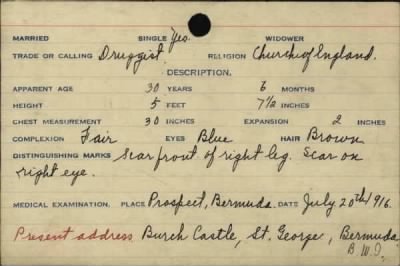 MARRIED SINGLE Yes. WIDOWER
TRADE OR CALLING Druggist RELIGION Church of England.
DESCRIPTION.
APPARENT AGE 30 YEARS 6 MONTHS
HEIGHT 5 FEET 7½ INCHES
CHEST MEASUREMENT 30 INCHES EXPANSION 2 INCHES
COMPLEXION Fair EYES Blue HAIR Brown
DISTINGUISHING MARKS Scar front of right leg. Scar on
right eye.
MEDICAL EXAMINATION. PLACE Prospect, Bermuda. DATE July 20th 1916.
Present address Burch Castle, St. George, Bermuda
B.W.I.